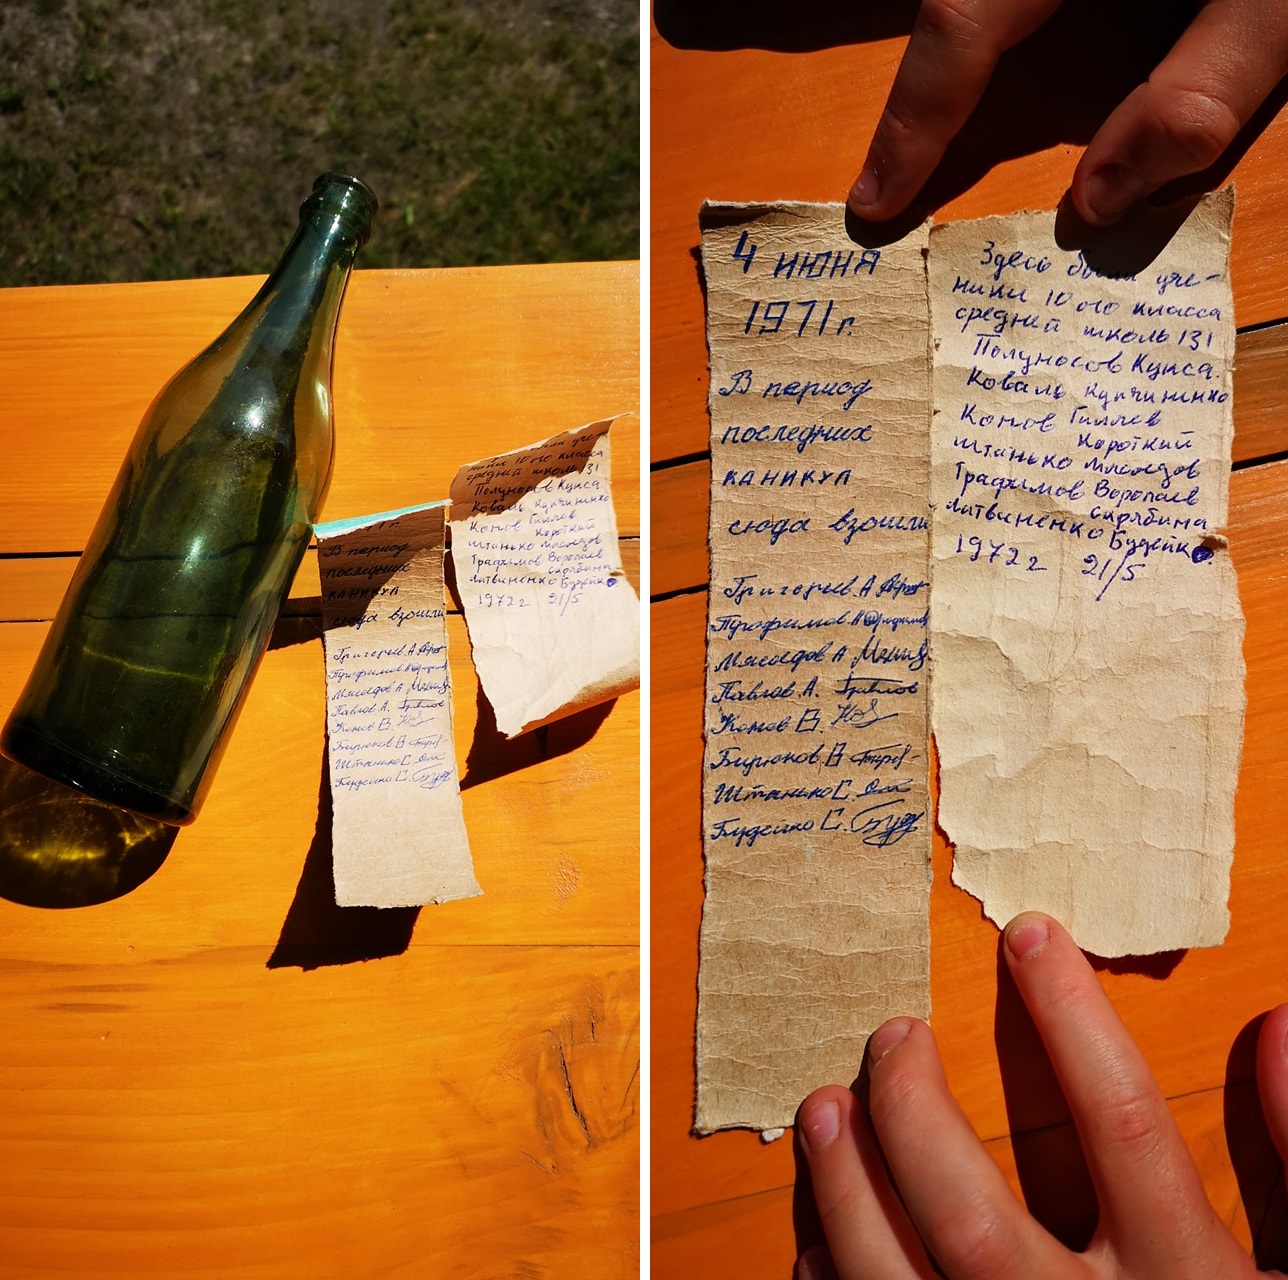 4 июня
1971 г.
В период
последних
каникул
сюда взошли
Григорьев. А
Трофимов. А
Мясоедов А
Павлов А. Павлов
Конов В.
Бирюков В
Штанько С.
Будейко С.
Здесь были уче-
ники 10 ого класса
средней школь 131
Полуносов Кукса.
Коваль
Конов Гиллев
Короткий
Штанько Мясоедов
Трафимов Воропаев
Скрябина
Литвиненко Будейко.
1972 г 21/5